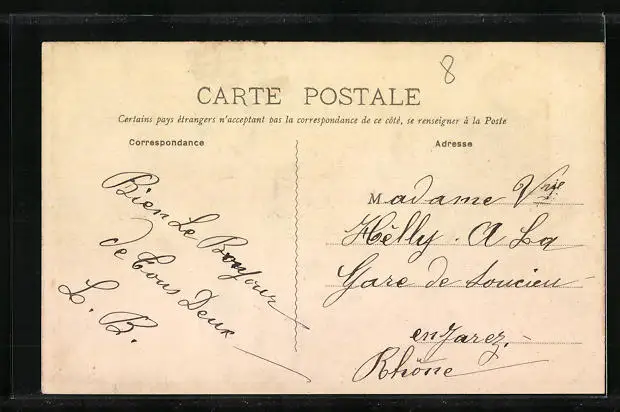 8
CARTE POSTALE
Certains pays étrangers n'acceptant pas la correspondance de ce côté, se renseigner à la Poste
Correspondance
Bien Le Bonjour
de tous Deux
L. B.
Adresse
Madame Vve
Hélly. A La
Gare de Soucieu
en Jarez.
Rhône